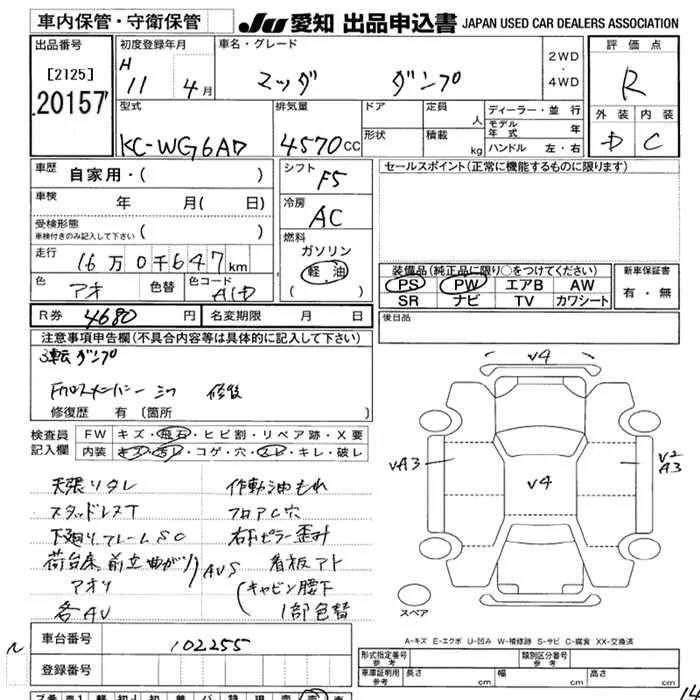 車内保管・守衛保管
JU 愛知 出品申込書 JAPAN USED CAR DEALERS ASSOCIATION
出品番号
[2125]
20157
初度登録年月
H 11 4月
車名・グレード
マツダ ダンプ
2WD
・
4WD
評価点
R
外装 内装
D C
型式
KC-WG6AD
排気量
4570cc
ドア
形状
定員 人
積載 kg
ディーラー・並行
モデル年式 年
ハンドル 左・右
車歴 自家用・( )
車検 年 月( 日)
受検形態
車検付きのみ記入して下さい ( )
走行 16万0千647km
色 アオ 色替 色コード A1D
シフト
F5
冷房
AC
燃料
ガソリン
軽油
( )
セールスポイント(正常に機能するものに限ります)
装備品(純正品に限り○をつけてください)
PS PW エアB AW
SR ナビ TV カワシート
新車保証書
有・無
R券 4680円 名変期限 月 日
後日品
注意事項申告欄(不具合内容等は具体的に記入して下さい)
3転ダンプ
Fクロスメンバー 修後
修復歴 有 [箇所 ]
検査員
記入欄
FW キズ・飛石・ヒビ割・リペア跡・X要
内装 キズ・汚レ・コゲ・穴・スレ・キレ・破レ
天張リタレ 作動油もれ
スタッドレスT フロアC穴
下廻りフレームSC 右Fピラー歪み
荷台床、前立曲がり AUS 看板アト
アオリ (キャビン腰下
各AU 1部色替
V4
VA3
V4
V2
A3
スペア
A-キズ E-エクボ U-凹み W-補修跡 S-サビ C-腐食 XX-交換済
車台番号 102255
登録番号
形式指定番号
参考
類別区分番号
参考
車庫証明用
参考
長さ cm 幅 cm 高さ cm